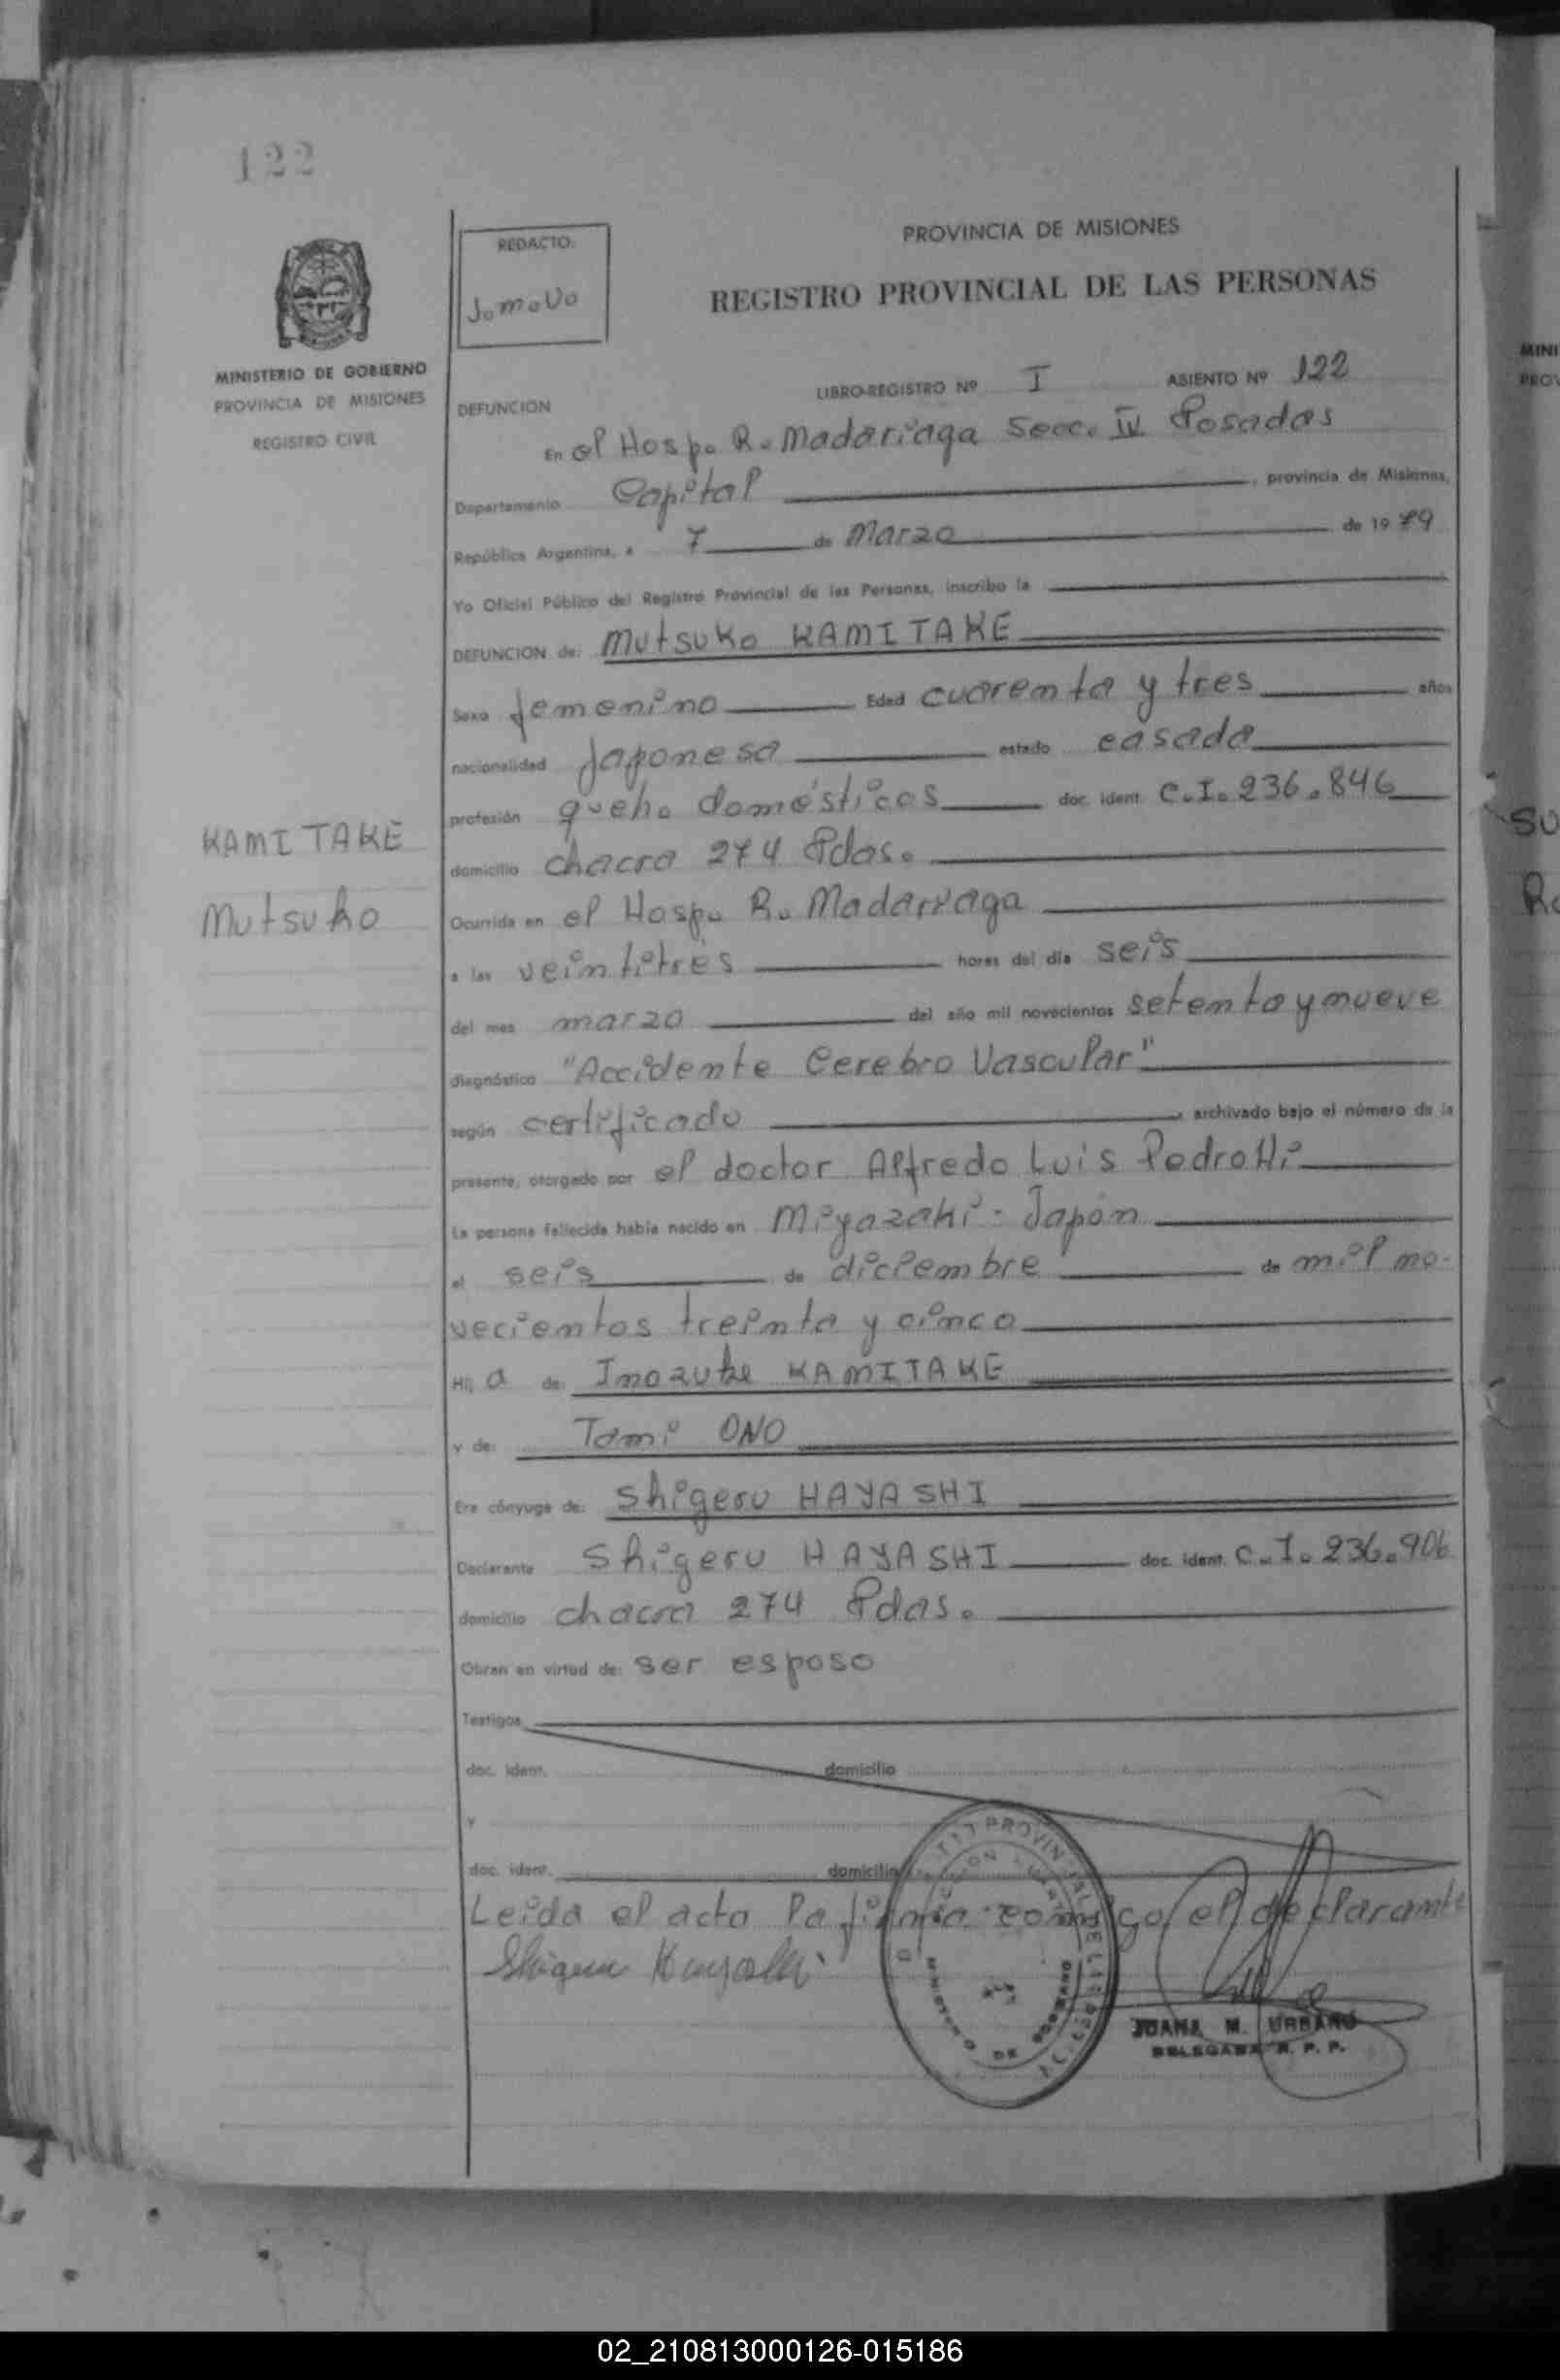 122
MINISTERIO DE GOBIERNO
PROVINCIA DE MISIONES
REGISTRO CIVIL
REDACTO:
J.M.V.
PROVINCIA DE MISIONES
REGISTRO PROVINCIAL DE LAS PERSONAS
LIBRO-REGISTRO Nº I ASIENTO Nº 122
DEFUNCION
En el Hosp. R. Madariaga Secc. IV Posadas
Departamento Capital, provincia de Misiones,
República Argentina, a 7 de Marzo de 1979
Yo Oficial Público del Registro Provincial de las Personas, inscribo la
DEFUNCION de: Mutsuko KAMITAKE
Sexo femenino Edad cuarenta y tres años
nacionalidad Japonesa estado casada
profesión queh. domésticos doc. ident. C.I. 236.846
KAMITAKE
Mutsuko
domicilio chacra 274 Pdas.
Ocurrida en el Hosp. R. Madariaga
a las veintitrés horas del día seis
del mes marzo del año mil novecientos setenta y nueve
diagnóstico "Accidente Cerebro Vascular"
según certificado, archivado bajo el número de la
presente, otorgado por el doctor Alfredo Luis Pedrotti
La persona fallecida había nacido en Miyazaki - Japón
el seis de diciembre de mil no-
vecientos treinta y cinco
Hij a de: Inozuke KAMITAKE
y de: Tami ONO
Era cónyuge de: Shigeru HAYASHI
Declarante Shigeru HAYASHI doc. ident. C.I. 236.906
domicilio chacra 274 Pdas.
Obran en virtud de: ser esposo
Testigos
doc. ident. domicilio
y
doc. ident. domicilio
Leida el acta la firma conmigo el declarante
Shigeru Hayashi
JUANA M. URBANO
DELEGADA R. P. P.
02_210813000126-015186